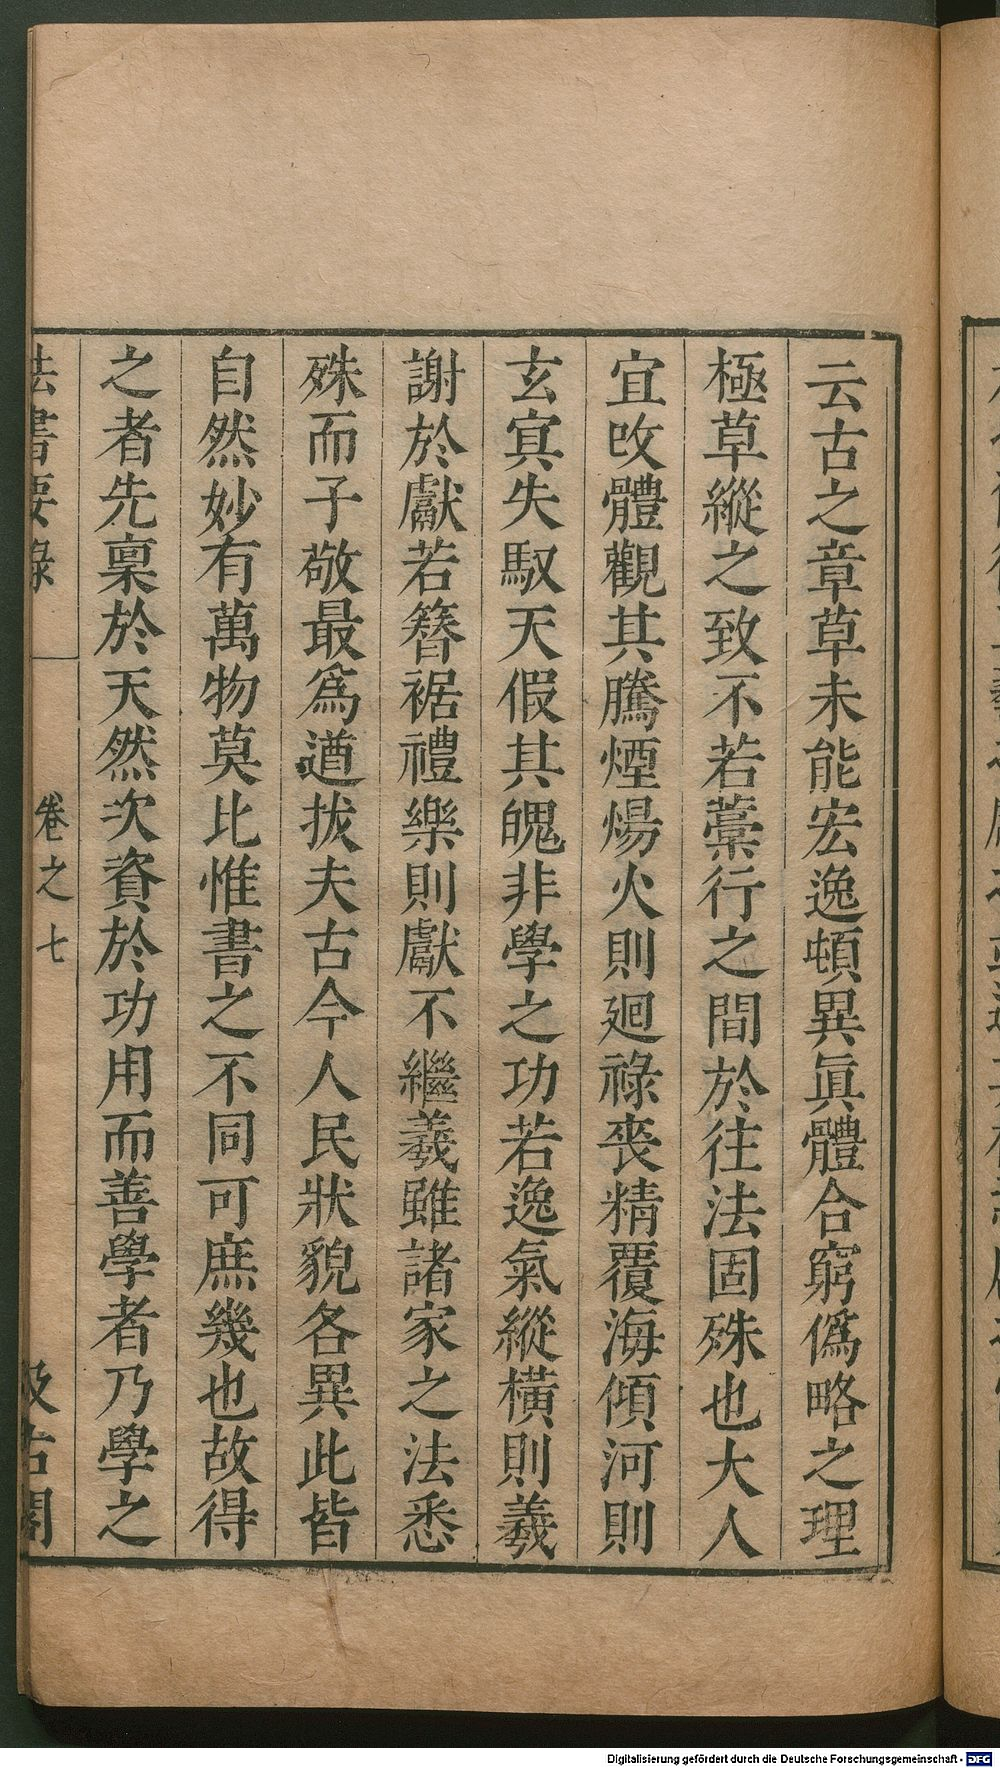 云古之章草未能宏逸頓異眞體合窮僞略之理
極草縱之致不若藁行之間於往法固殊也大人
宜改體觀其騰煙煬火則廻祿喪精覆海傾河則
玄㝠失馭天假其魄非學之功若逸氣縱橫則羲
謝於獻若簪裾禮樂則獻不繼羲雖諸家之法悉
殊而子敬最爲遒拔夫古今人民狀貌各異此皆
自然妙有萬物莫比惟書之不同可庶幾也故得
之者先稟於天然次資於功用而善學者乃學之
法書要錄 卷之七 汲古閣
Digitalisierung gefördert durch die Deutsche Forschungsgemeinschaft - DFG